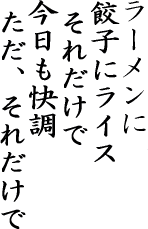 ラーメンに
餃子にライス
それだけで
今日も快調
ただ、それだけで